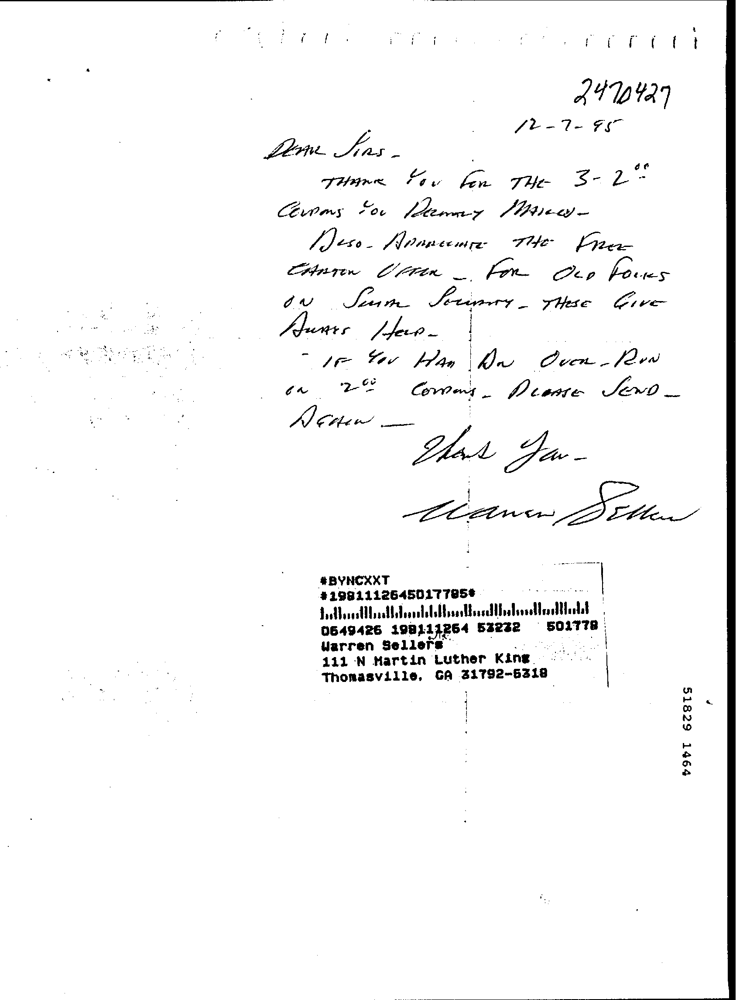 2470427
12-7-95
DEAR SIRS-
THANK YOU FOR THE 3-2⁰⁰
COUPONS YOU RECENTLY MAILED-
ALSO- APPRECIATE THE FREE
CARTON OFFER - FOR OLD FOLKS
ON SOCIAL SECURITY - THESE GIVE
AWAYS HELP-
- IF YOU HAD AN OVER-RUN
ON 2⁰⁰ COUPONS - PLEASE SEND -
AGAIN -
Thank You -
Warren Sellers
#BYNCXXT
#19811126450177​85#
0649426 198111264 53232 501778
Jr.
Warren Sellers
111 N Martin Luther King
Thomasville, GA 31792-5318
51829 1464